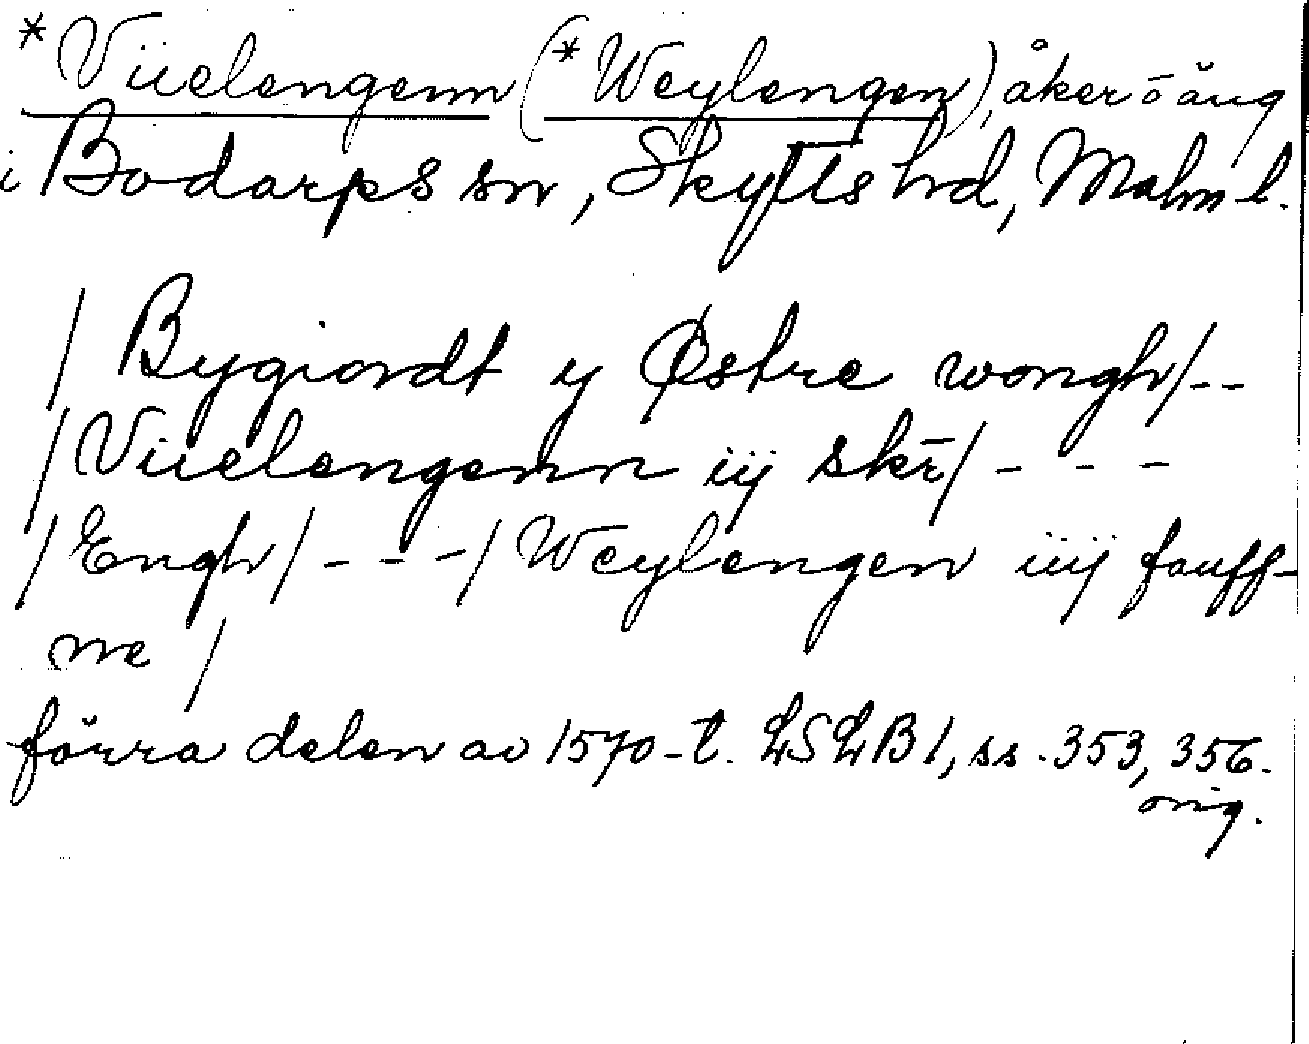 *Viielengenn (*Weylengen), åker o äng
i Bodarps sn, Skytts hd, Malm l.
/ Bygiordt y Østre wongh/--
/Viielengenn iij skr̄/ - - -
/Engh/ - - - / Weylengen iiij fauff-
ne /
förra delen av 1570-t. LSLB 1, ss. 353, 356.
orig.